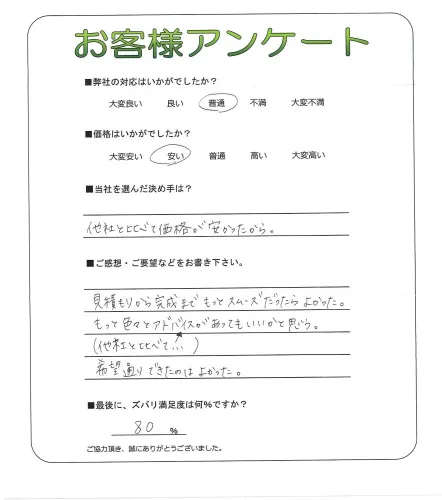 お客様アンケート
■弊社の対応はいかがでしたか?
大変良い 良い 普通 不満 大変不満
■価格はいかがでしたか?
大変安い 安い 普通 高い 大変高い
■当社を選んだ決め手は?
他社と比べて価格が安かったから。
■ご感想・ご要望などをお書き下さい。
見積もりから完成までもっとスムーズだったらよかった。
もっと色々とアドバイスがあってもいいかと思う。
(他社と比べて...)
希望通りできたのはよかった。
■最後に、ズバリ満足度は何%ですか?
80 %
ご協力頂き、誠にありがとうございました。